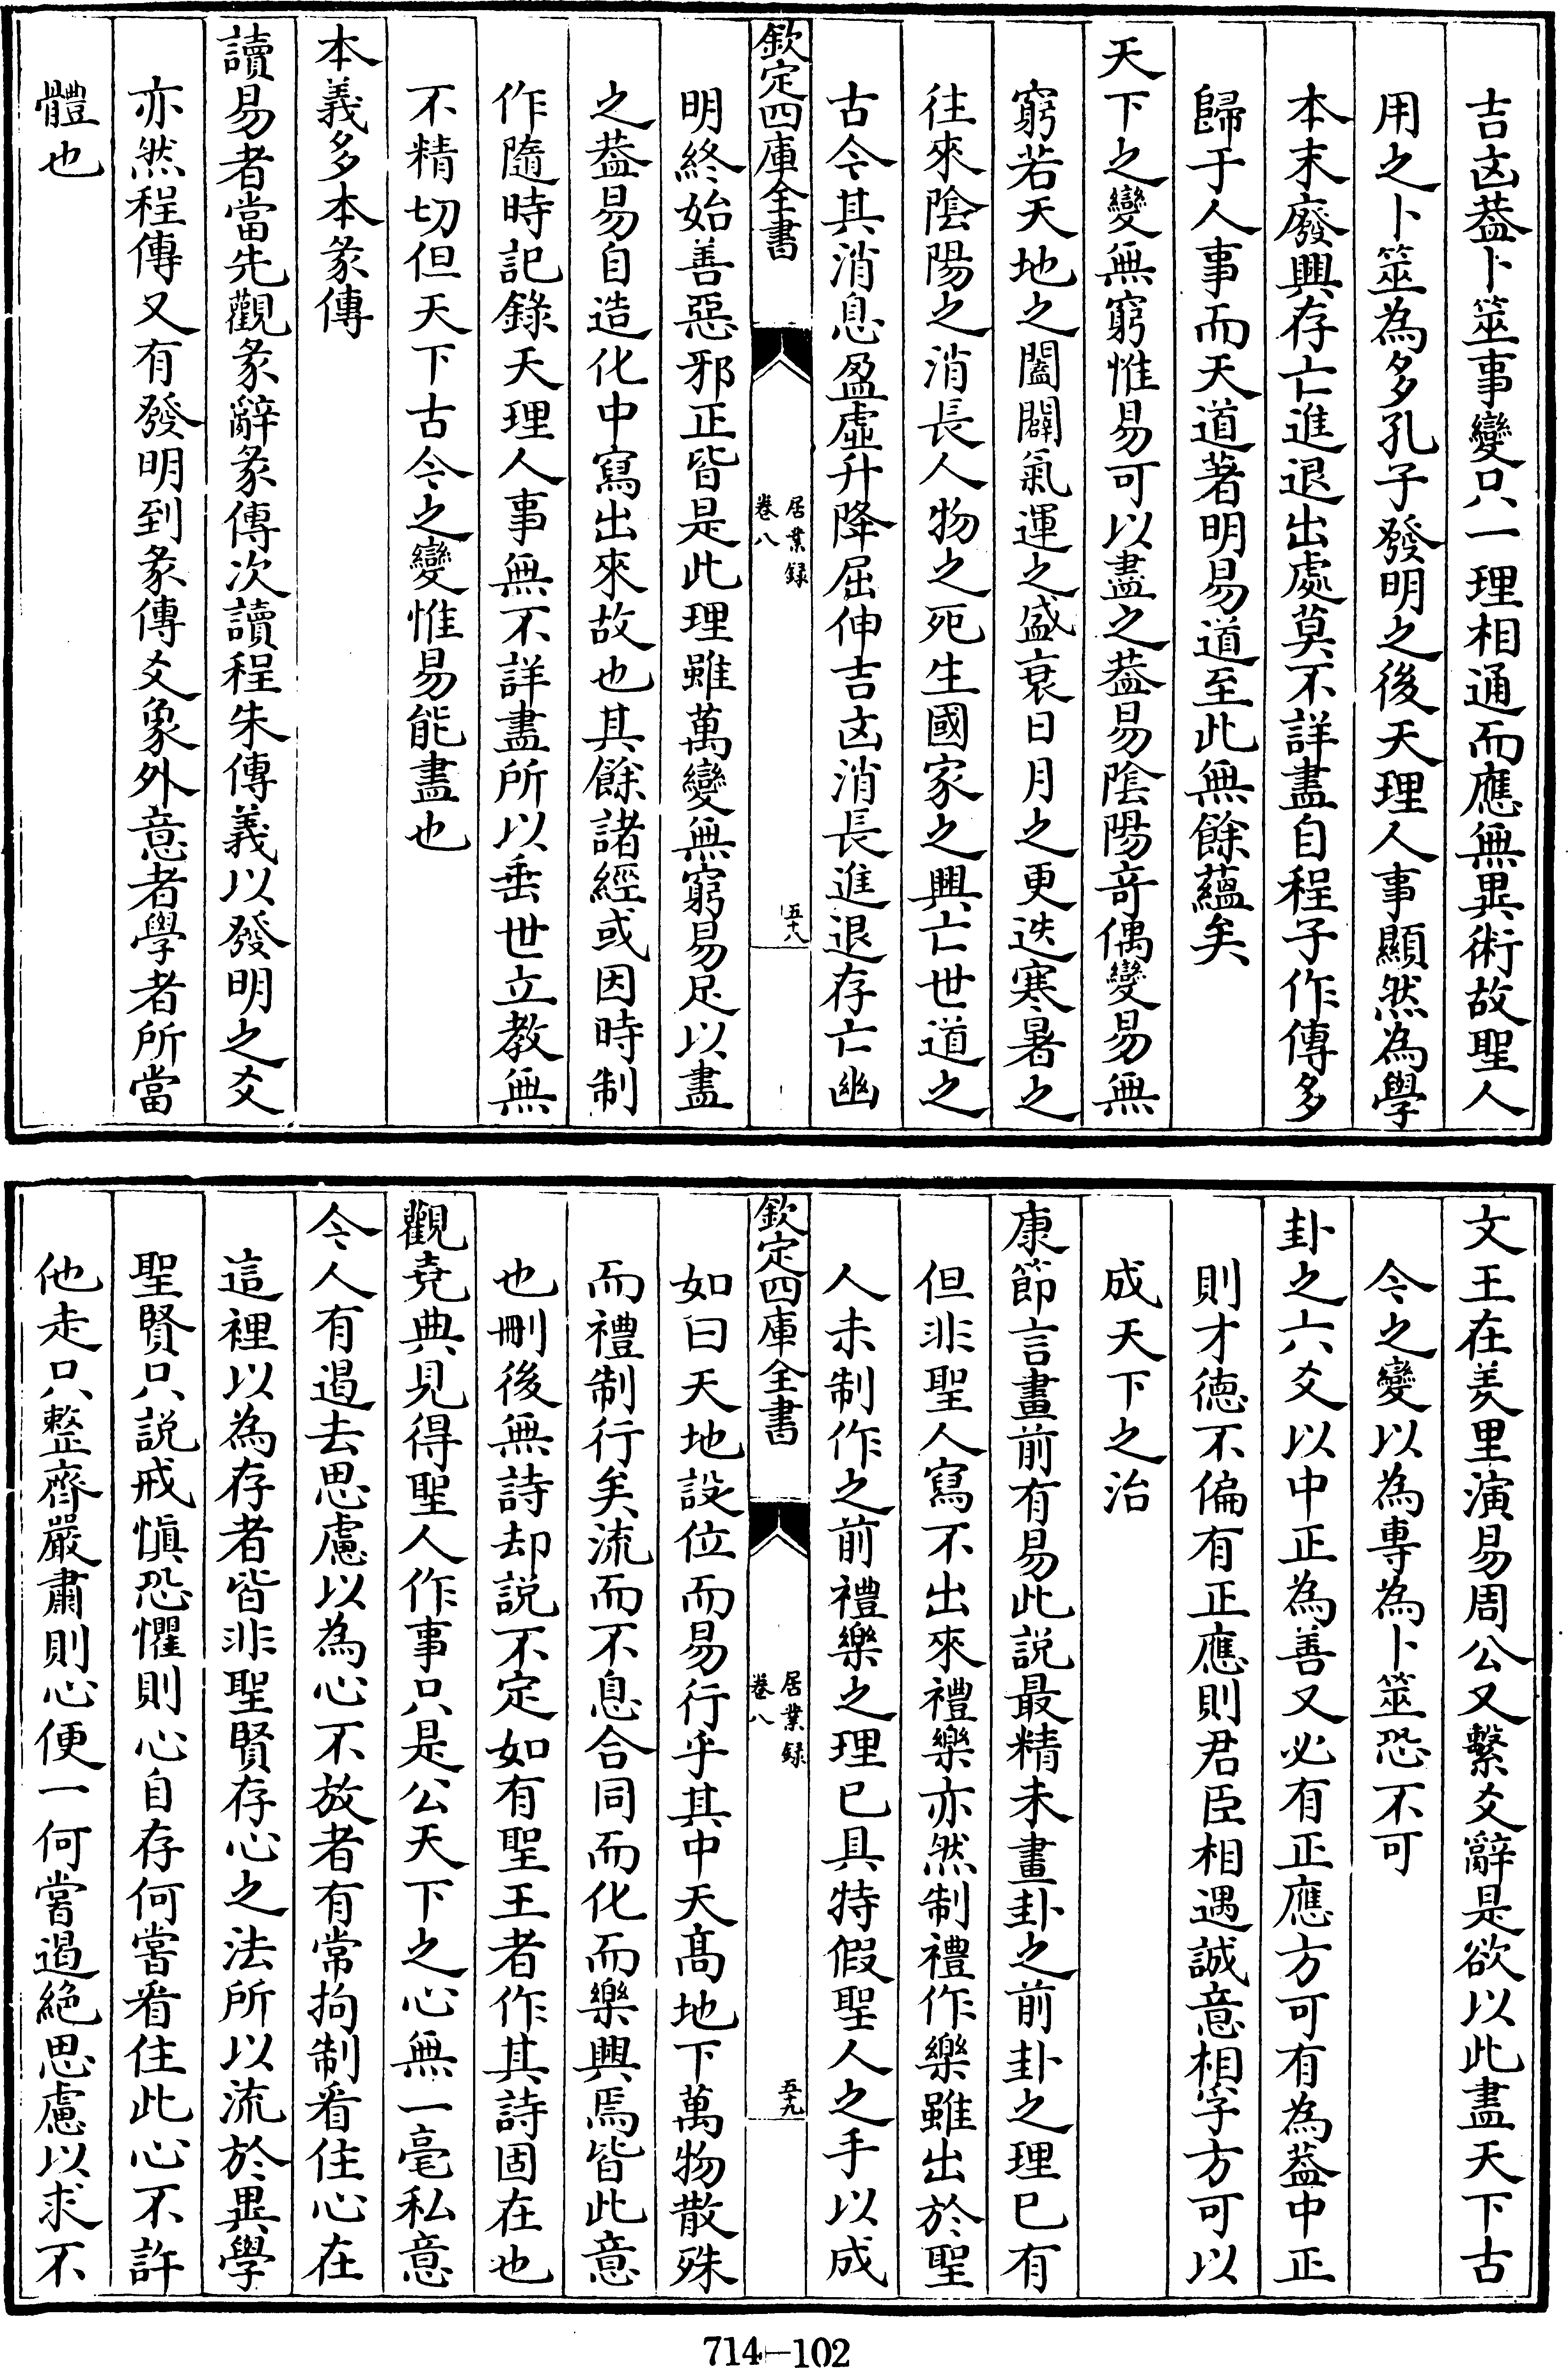 吉凶葢卜筮事變只一理相通而應無異術故聖人
用之卜筮為多孔子發明之後天理人事顯然為學
本末廢興存亡進退出處莫不詳盡自程子作傳多
歸于人事而天道著明易道至此無餘蘊矣
天下之變無窮惟易可以盡之葢易陰陽竒偶變易無
窮若天地之闔闢氣運之盛衰日月之更迭寒暑之
往來陰陽之消長人物之死生國家之興亡世道之
古今其消息盈虛升降屈伸吉凶消長進退存亡幽
欽定四庫全書
居業録
卷八
五十八
明終始善惡邪正皆是此理雖萬變無窮易足以盡
之葢易自造化中寫出來故也其餘諸經或因時制
作隨時記錄天理人事無不詳盡所以垂世立教無
不精切但天下古今之變惟易能盡也
本義多本彖傳
讀易者當先觀彖辭彖傳次讀程朱傳義以發明之爻
亦然程傳又有發明到彖傳爻象外意者學者所當
體也
文王在羑里演易周公又繫爻辭是欲以此盡天下古
今之變以為專為卜筮恐不可
卦之六爻以中正為善又必有正應方可有為葢中正
則才德不偏有正應則君臣相遇誠意相孚方可以
成天下之治
康節言畫前有易此説最精未畫卦之前卦之理已有
但非聖人寫不出來禮樂亦然制禮作樂雖出於聖
人未制作之前禮樂之理已具特假聖人之手以成
欽定四庫全書
居業録
卷八
五十九
如曰天地設位而易行乎其中天髙地下萬物散殊
而禮制行矣流而不息合同而化而樂興焉皆此意
也刪後無詩却説不定如有聖王者作其詩固在也
觀堯典見得聖人作事只是公天下之心無一毫私意
今人有遏去思慮以為心不放者有常拘制看住心在
這裡以為存者皆非聖賢存心之法所以流於異學
聖賢只説戒慎恐懼則心自存何嘗看住此心不許
他走只整齊嚴肅則心便一何嘗遏絶思慮以求不
714-102